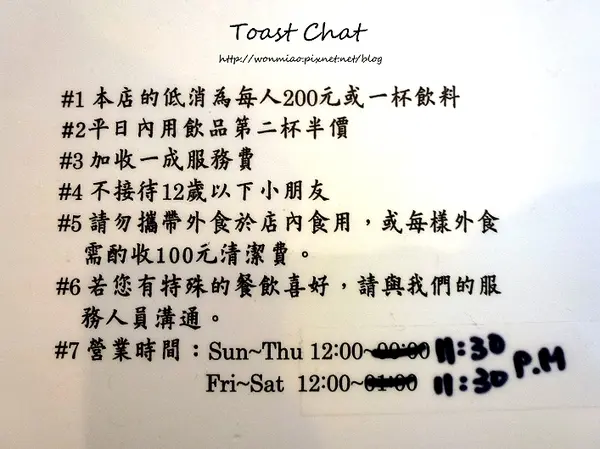 Toast Chat
http://wonmiao.pixnet.net/blog
#1 本店的低消為每人200元或一杯飲料
#2平日內用飲品第二杯半價
#3 加收一成服務費
#4 不接待12歲以下小朋友
#5 請勿攜帶外食於店內食用，或每樣外食
需酌收100元清潔費。
#6 若您有特殊的餐飲喜好，請與我們的服
務人員溝通。
#7 營業時間：Sun~Thu 12:00~00:00 11:30 P.M
Fri~Sat 12:00~01:00 11:30